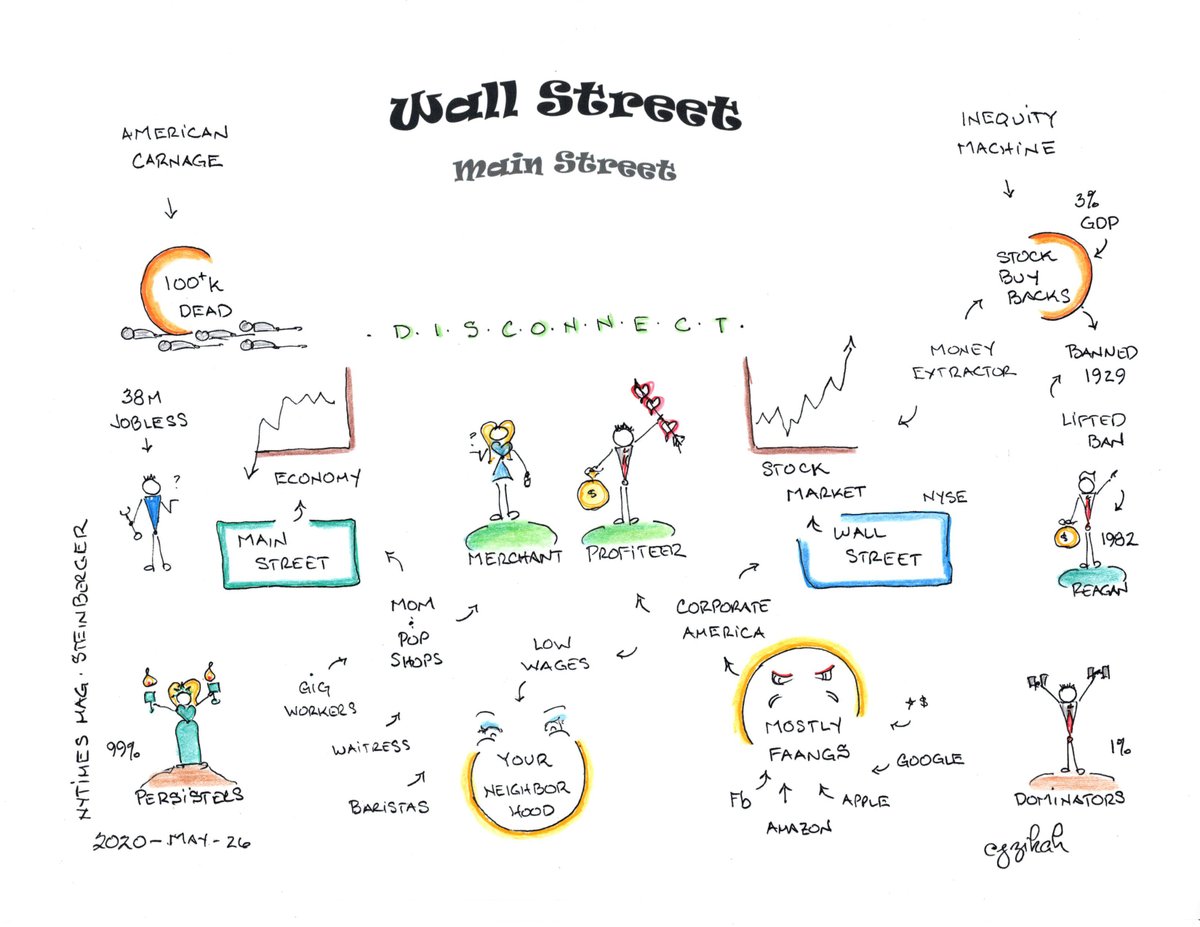 Wall Street
Main Street
AMERICAN
CARNAGE
100+K
DEAD
38M
JOBLESS
?
D.I.S.C.O.N.N.E.C.T.
INEQUITY
MACHINE
3%
GDP
STOCK
BUY
BACKS
MONEY
EXTRACTOR
BANNED
1929
LIFTED
BAN
$
1982
REAGAN
ECONOMY
MAIN
STREET
?
MERCHANT
$
PROFITEER
STOCK
MARKET
NYSE
WALL
STREET
MOM
&
POP
SHOPS
GIG
WORKERS
WAITRESS
BARISTAS
LOW
WAGES
YOUR
NEIGHBOR
HOOD
CORPORATE
AMERICA
MOSTLY
FAANGS
+$
GOOGLE
APPLE
AMAZON
Fb
99%
PERSISTERS
1%
DOMINATORS
NYTIMES MAG. STEINBERGER
2020-MAY-26
cgzikah